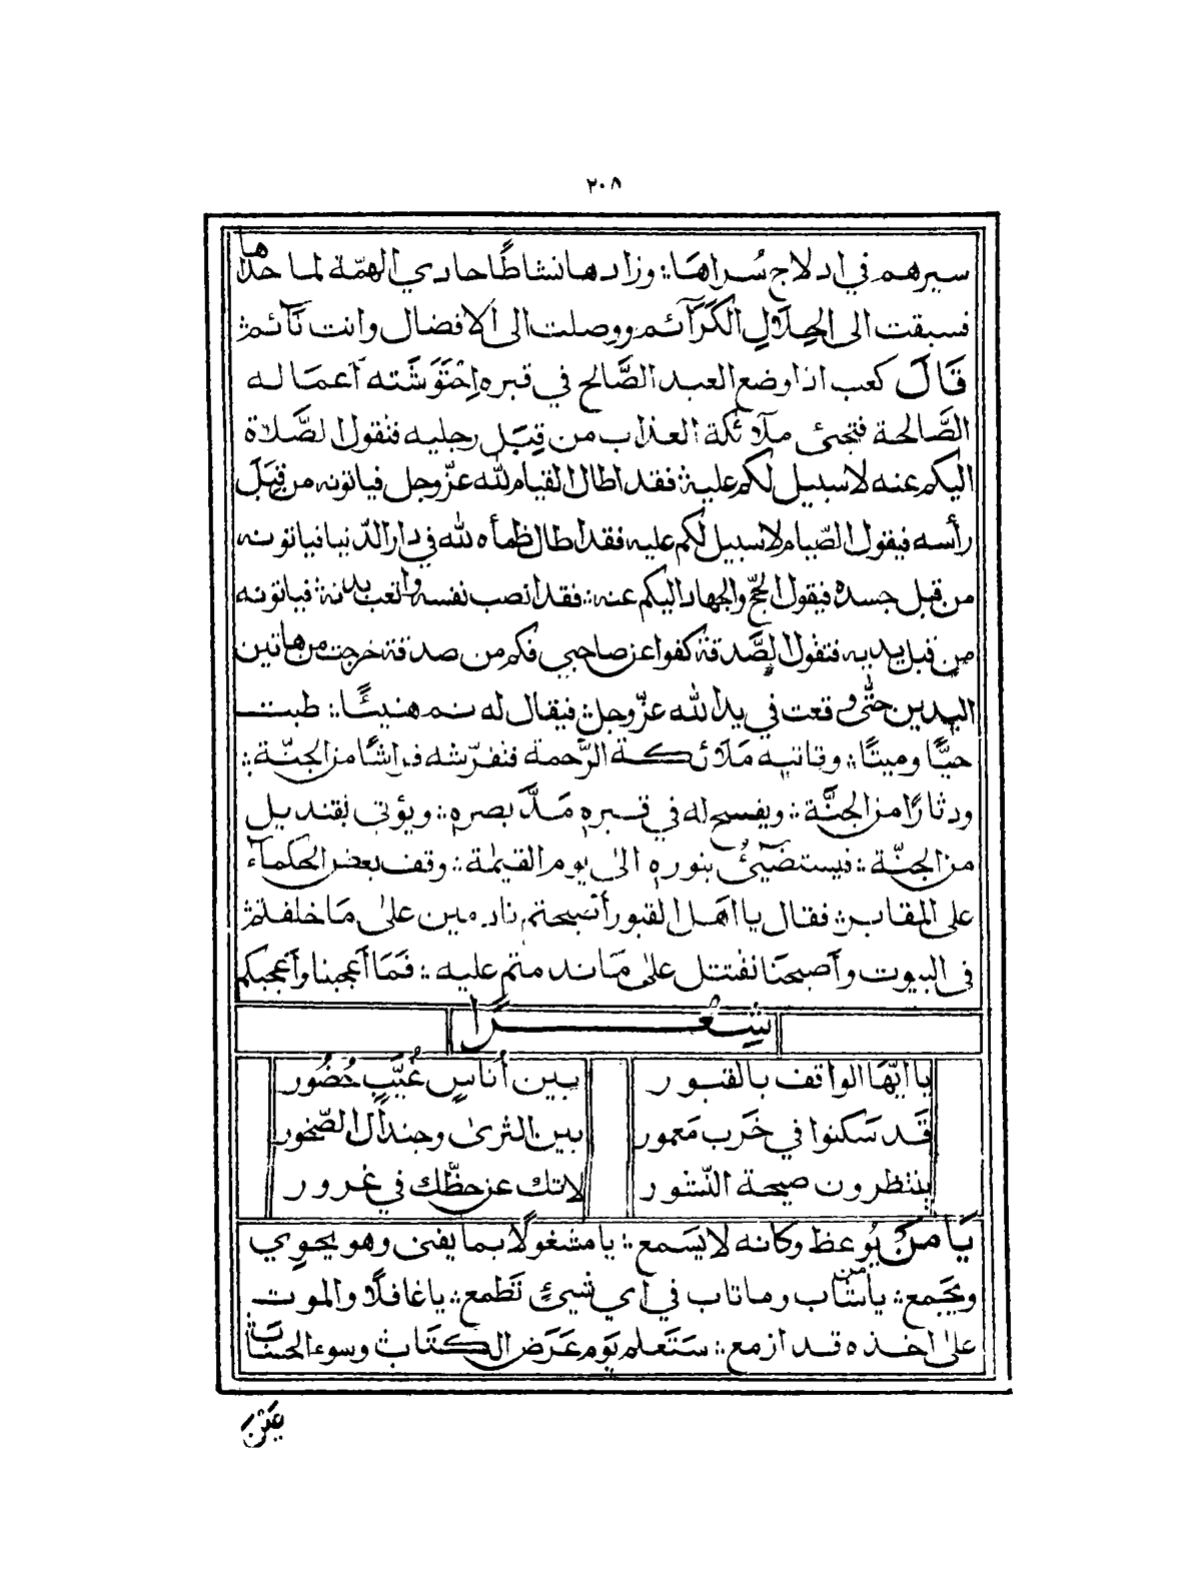 ٢٠٨
سيرهم في ادلاج سُراهَا ؞ وزادها نشاطًا حادي الهمّة لما حداها
فسبقت الى الحِلالِ الكَرَآئم ووصلت الى الافضال وانت نَآئم ؞
قَالَ كعب اذا وضع العبد الصَّالح في قبره اِحْتَوَشَته اَعمَاله
الصَّالحة فتجئ ملآئكة العذاب من قِبَل رجليه فتقول الصَّلاة
اليكم عنه لا سبيل لكم عليه ؞ فقد اطال القيام لله عزّ وجل فياتونه من قِبَل
رأسه فيقول الصّيام لا سبيل لكم عليه فقد اطال ظمأه لله في دار الدّنيا فياتونه
من قبل جسده فيقول الحجّ والجهاد اليكم عنه ؞ فقد انصب نفسه واتعب بدنه ؞ فياتونه
من قبل يديه فتقول الصَّدقة كفوا عن صاحبي فكم من صدقة خرجت من هاتين
اليدين حتّى وقعت في يد الله عزّ وجل ؞ فيقال له نم هنيئًا ؞ طبت
حيًّا وميتًا ؞ وتاتيه مَلَائكة الرَّحمة فتفرّشه فراشًا من الجنّة ؞
ودثارًا من الجنَّة ؞ ويفسح له في قبره مَدَّ بصره ؞ ويؤتى بقنديل
من الجنّة ؞ فيستضيئُ بنوره الى يوم القيٰمة ؞ وقف بعض الحكمآء
على المقابر ؞ فقال يا اهَل القبور أصبحتم نادمين على مَا خلفتم ؞
في البيوت وأصبحنَا نقتتل على مَا ندمتم عليه ؞ فمَا أعجبنا وأعجبكم
شِعْرًا
يا ايّهَا الواقف بالقبور بين اُناسٍ غُيَّبٍ حُضُور
قَد سَكنوا في خَرب مَعمور بين الثرى وجندل الصّخور
ينتظرون صيحة النّشور لا تك عن حظّك في غرور
يَا مَنْ يُوعظ وكانه لا يَسمع ؞ يا مشغولًا بما يفنى وهو يحوي
ويجمع ؞ يا من شاب وما تاب في اي شيئٍ تَطمع ؞ يا غافلًا والموت
على اخذه قد ازمع ؞ سَتَعلم يَوم عَرَض الكتَاب ؞ وسوء الحسَاب